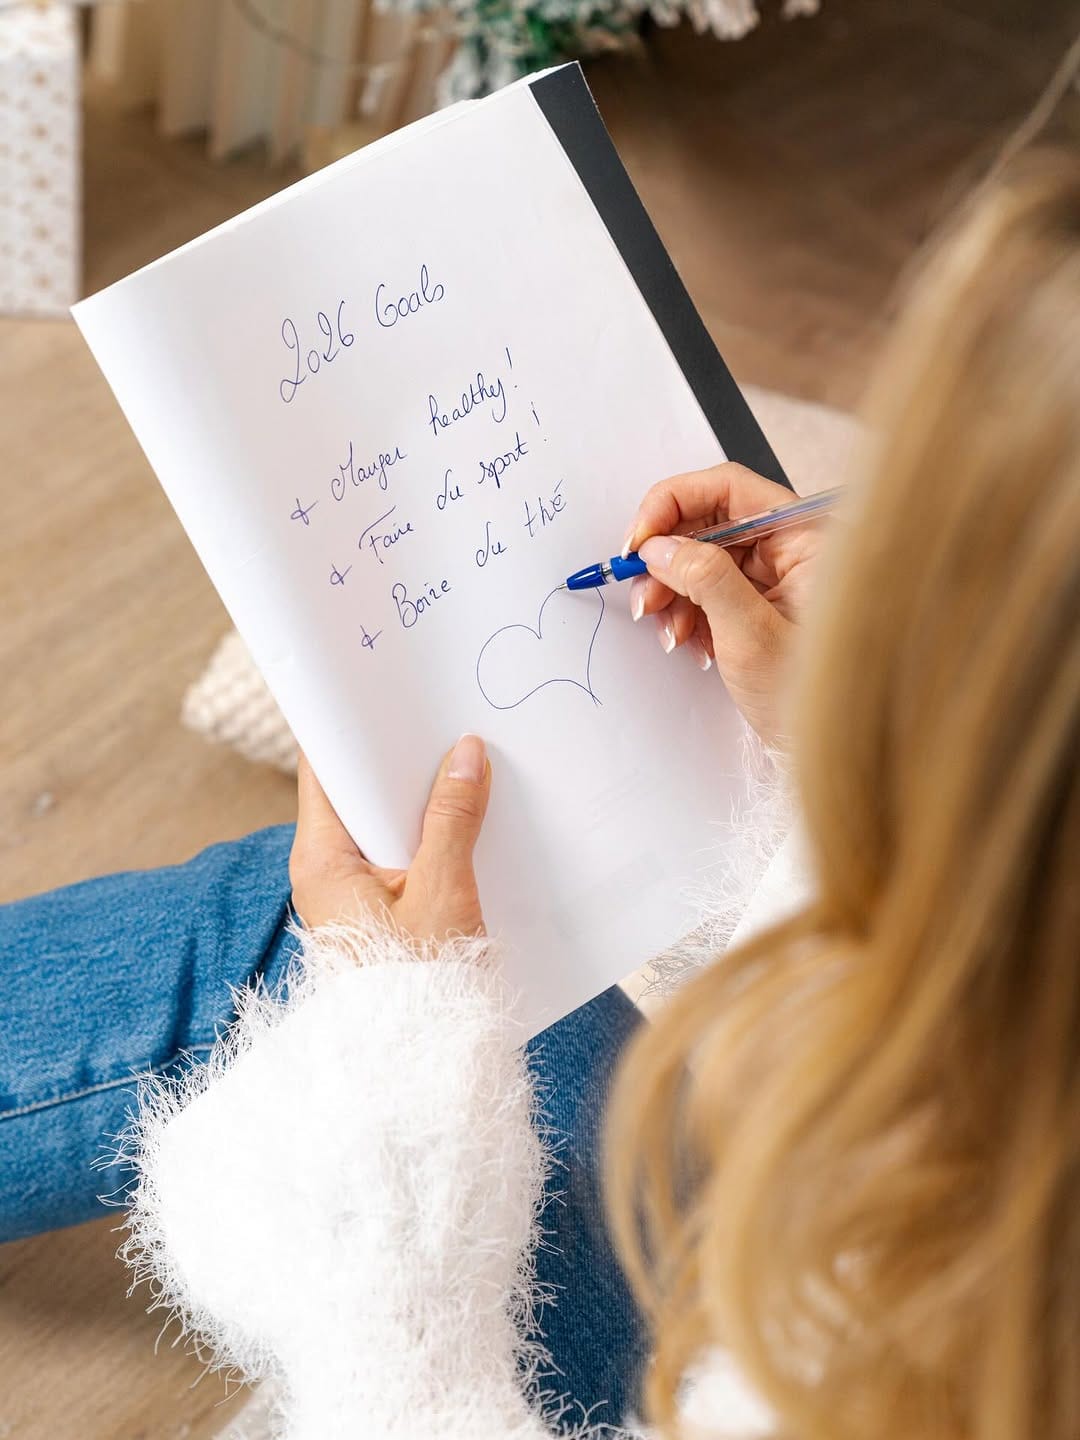 2026 Goals
+ Manger healthy!
+ Faire du sport!
+ Boire du thé